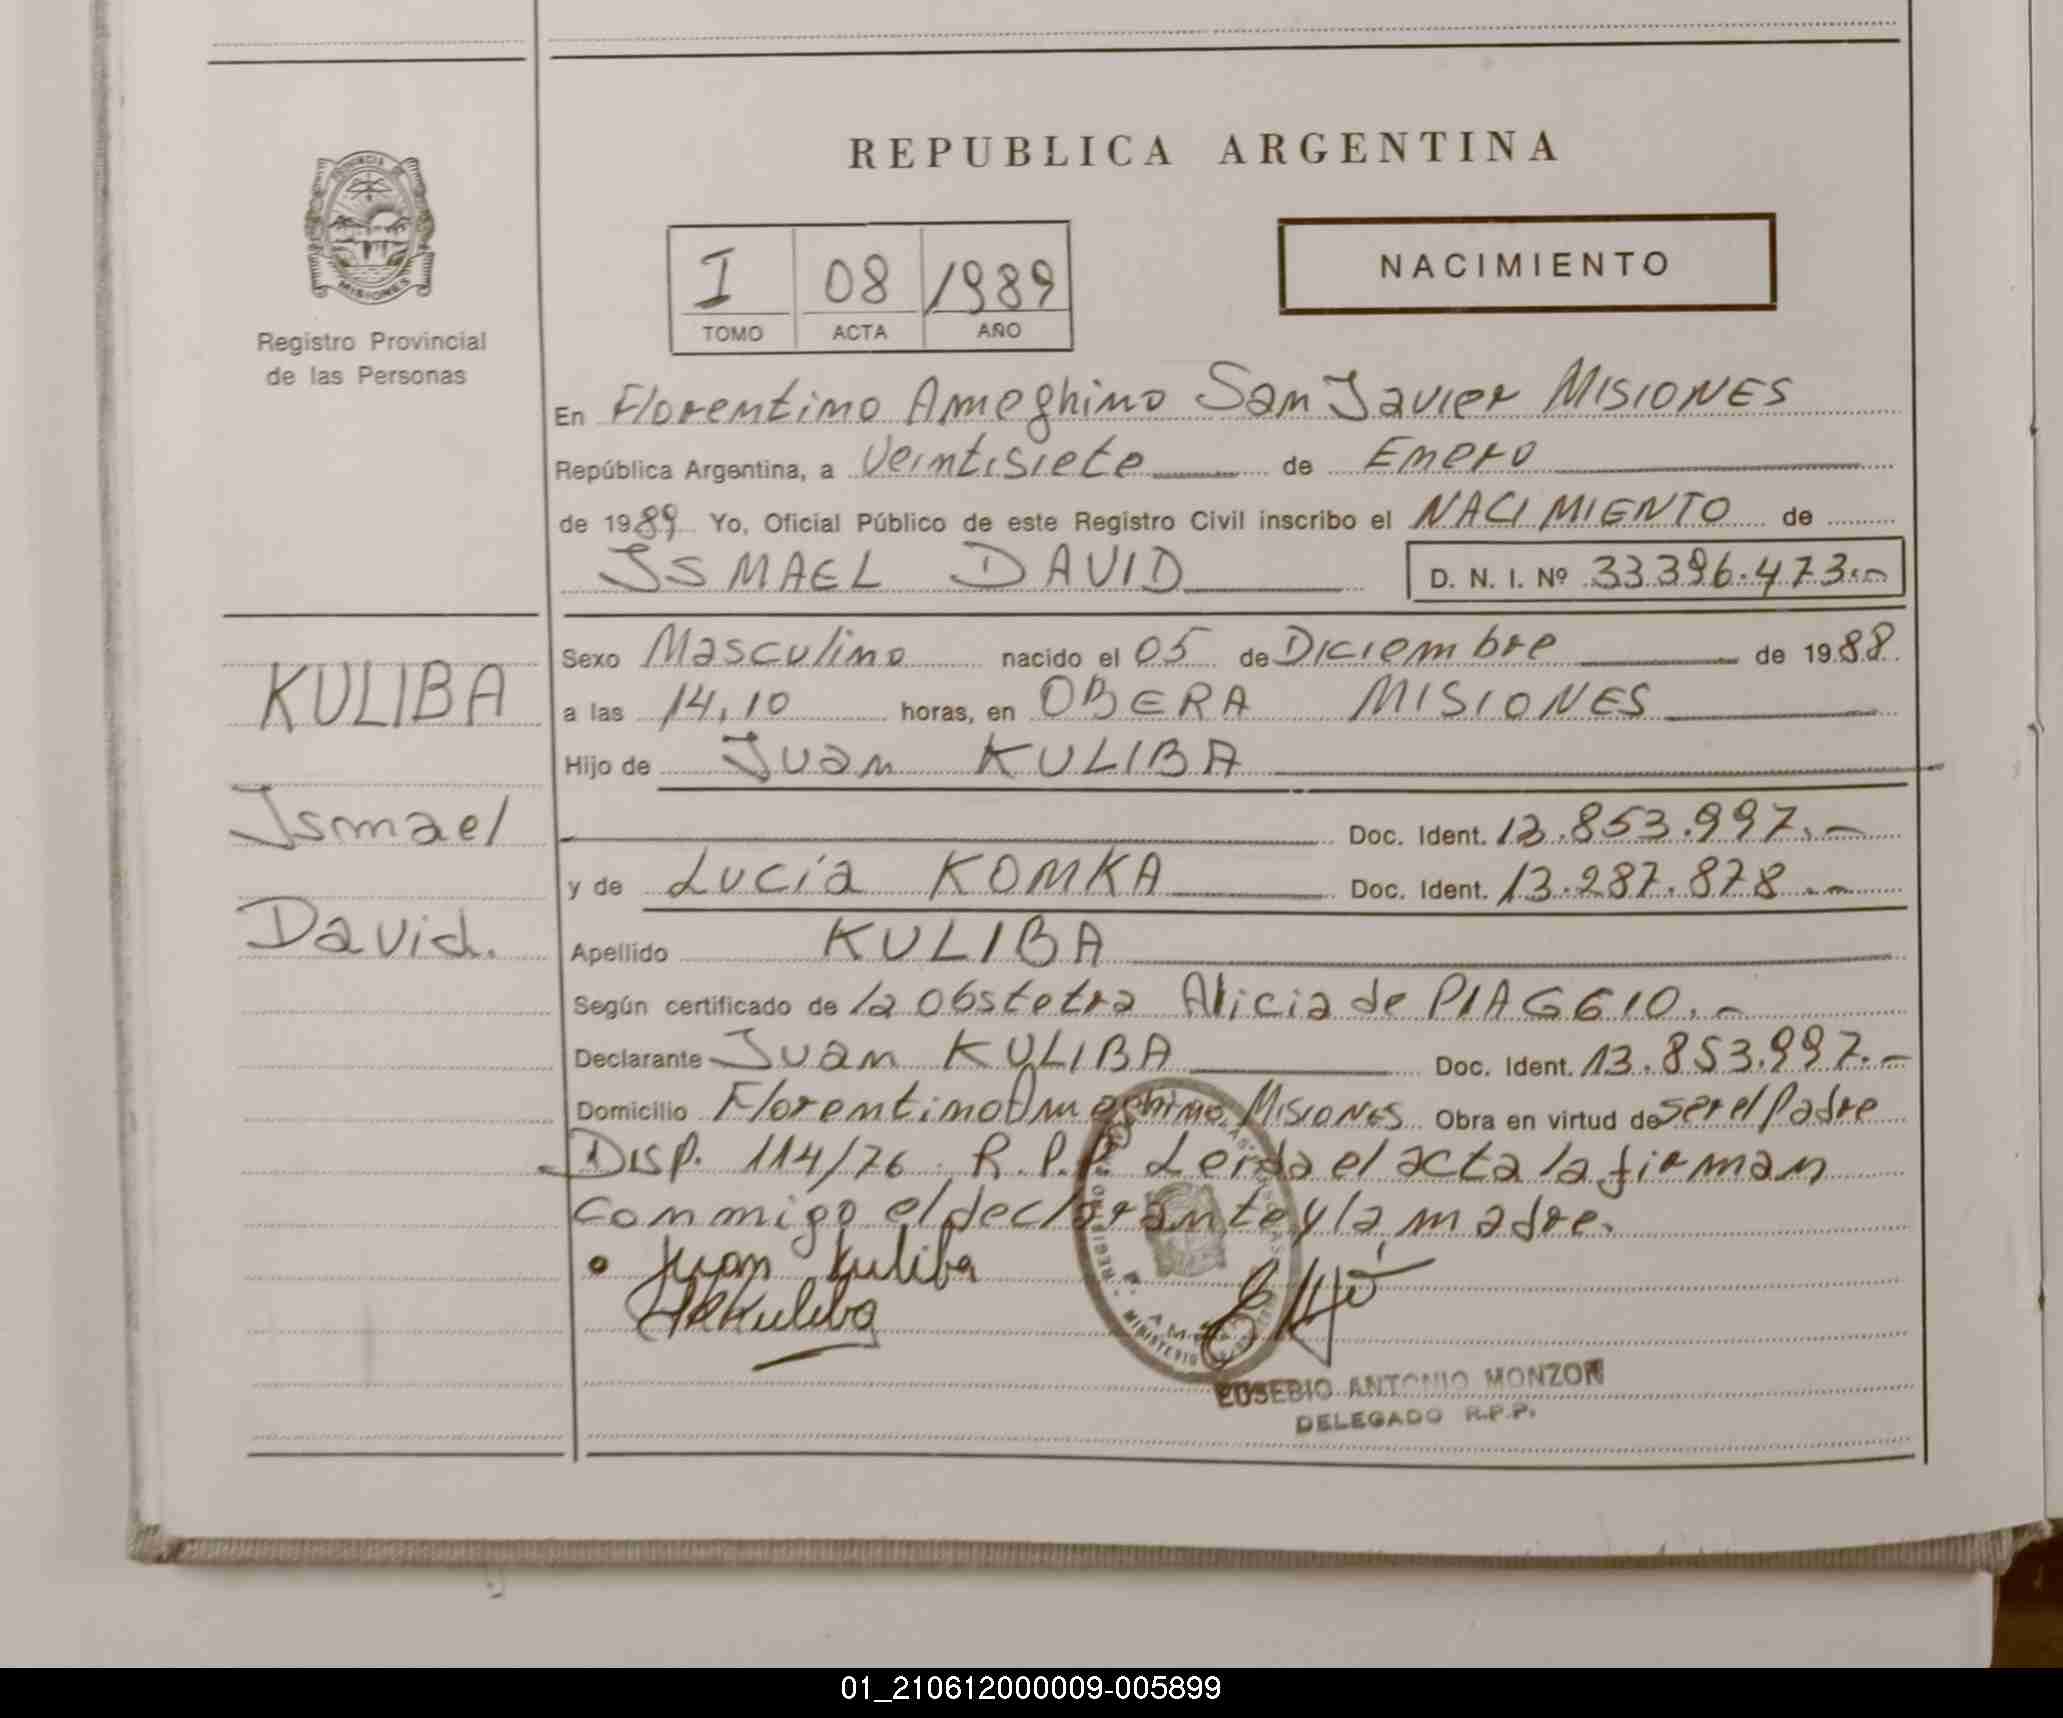 REPUBLICA ARGENTINA
PROVINCIA
MISIONES
Registro Provincial
de las Personas
I 08 1989
TOMO ACTA AÑO
NACIMIENTO
En Florentino Ameghino San Javier MISIONES
República Argentina, a Veintisiete de Enero
de 1989 Yo, Oficial Público de este Registro Civil inscribo el NACIMIENTO de
ISMAEL DAVID D. N. I. Nº 33.396.473.-
KULIBA
Ismael
David.
Sexo Masculino nacido el 05 de Diciembre de 1988.
a las 14,10 horas, en OBERA MISIONES
Hijo de Juan KULIBA
Doc. Ident. 13.853.997.-
y de Lucía KOMKA Doc. Ident. 13.287.878.-
Apellido KULIBA
Según certificado de la obstetra Alicia de PIAGGIO.-
Declarante Juan KULIBA Doc. Ident. 13.853.997.-
Domicilio Florentino Ameghino Misiones Obra en virtud de ser el Padre
Disp. 114/76 R.P.P. Leida el acta la firman
conmigo el declarante y la madre.
Juan Kuliba
Kuliba
EUSEBIO ANTONIO MONZON
DELEGADO R.P.P.
01_210612000009-005899